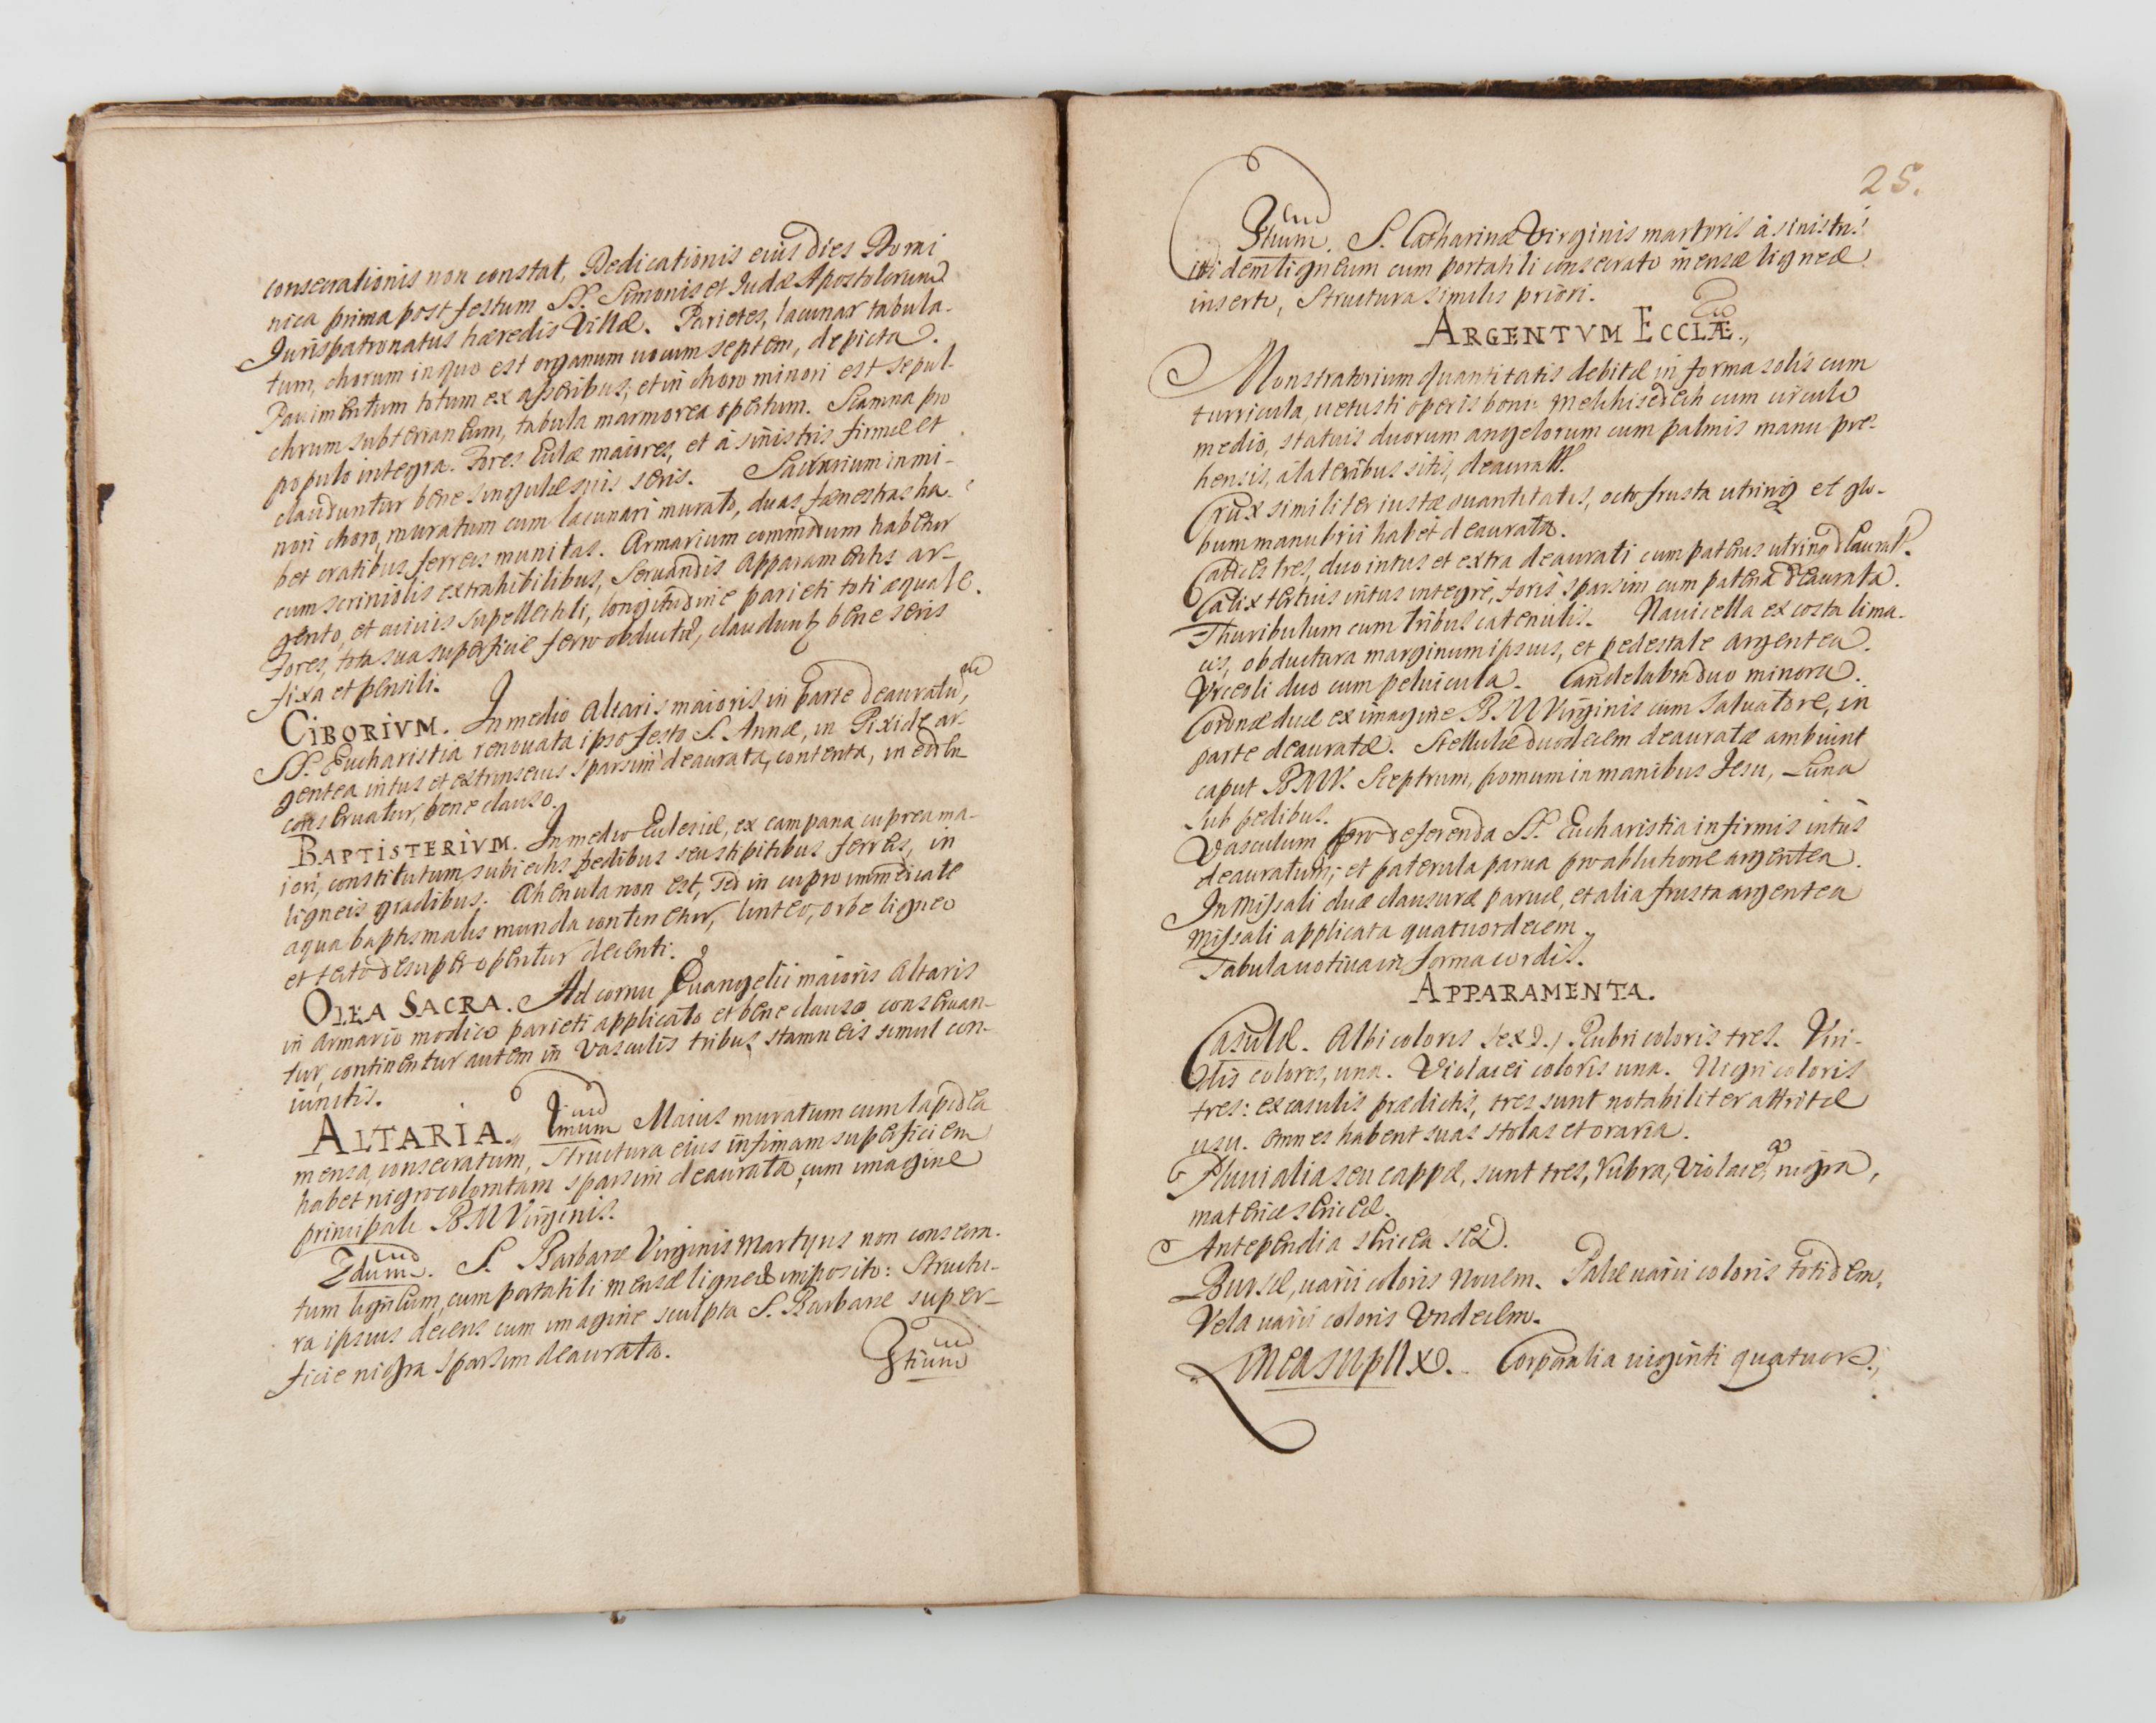 consecrationis non constat, Dedicationis eius dies Domi
nica prima post festum SS. Simonis et Judæ Apostolorum.
Jurispatronatus hæredis Villæ. Parietes, lacunar tabula-
tum, chorum in quo est organum vocum septem, depicta.
Pavimentum totum ex asseribus, et in choro minori est sepul-
chrum subterraneum, tabula marmorea opertum. Scamna pro
populo integra. Fores Eclæ maiores, et à sinistris firmæ et
clauduntur bene singulæ suis seris. Sacrarium in mi-
nori choro, muratum cum lacunari murato, duas fænestras ha-
bet cratibus ferreis munitas. Armarium commodum habetur
cum scriniolis extrahibilibus, servandis Apparamentis ar-
gento, et cuivis supellectili, longitudine parieti toti æquale.
Fores, tota sua superficie ferro obductæ, claudunt᷑ bene seris
fixa et pensili.
CIBORIVM. In medio Altaris maioris in parte deauratum,
SS. Eucharistia renovata ipso festo S. Annæ, in Pixide ar-
gentea intus et extrinsecus sparsim deaurata, contenta, in eodem
conservatur, bene clauso.
BAPTISTERIVM. In medio Eclesiæ, ex campana cuprea ma-
iori, constitutum, subiectis pedibus seu stipitibus ferreis, in
ligneis gradibus. Ahenula non est, sed in cupro immediate
aqua baptismalis munda continetur, linteo, orbe ligneo
et tecto desuper opertur decenti.
OLEA SACRA. Ad cornu Evangelii maioris Altaris
in armario modico parieti applicato et bene clauso conservan-
tur, continentur autem in vasculis tribus stamneis simul con-
iunctis.
ALTARIA. 1mum Maius muratum cum lapidea
mensa, consecratum, structura eius infimam superficiem
habet nigro coloratam sparsim deaurata, cum imagine
principali B M Virginis.
2dum. S. Barbaræ Virginis Martyris non consecra-
tum ligneum, cum portatili mensæ ligneæ imposito: Structu-
ra ipsius decens cum imagine sculpta S. Barbaræ super-
ficie nigra sparsim deaurata.
3tium
25.
3tium. S. Catharinæ Virginis martyris à sinistris
itidem ligneum cum portatili consecrato mensæ ligneæ
inserto, Structura similis priori.
ARGENTVM ECCLÆ.
Monstratorium quantitatis debitæ in forma solis cum
turricula, vetusti operis boni Melchisedech cum circulo
medio, statuis duorum angelorum cum palmis manu pre-
hensis, à lateribus sitis, deaurat.
Crux similiter iustæ quantitatis, octo frusta utrinq et glo-
bum manubrii habet deaurata.
Calices tres, duo intus et extra deaurati cum patenis utrinq deaurat.
Calix tertius intus integre, foris sparsim cum patena deaurata.
Thuribulum cum tribus catenulis. Navicella ex costa lima-
cis, obductura marginum ipsius, et pedestale argentea.
Vrceoli duo cum pelvicula. Candelabra duo minora.
Coronæ duæ ex imagine B M Virginis cum Salvatore, in
parte deauratæ. Stellulæ duodecem deauratæ ambiunt
caput BMV. Sceptrum, pomum in manibus Jesu, Luna
sub pedibus.
Vasculum pro deferenda SS. Eucharistia infirmis intus
deauratum, et paterula parva pro ablutione argentea.
In Missali duæ clausuræ parvæ, et alia frusta argentea
missali applicata quatuordecem.
Tabula votiva in forma cordis.
APPARAMENTA.
Casulæ. Albi coloris sex. Rubri coloris tres. Viri-
dis coloris, una. Violacei coloris una. Nigri coloris
tres: ex casulis prædictis, tres sunt notabiliter attritæ
usu. omnes habent suas stolas et oraria.
Pluvialia seu cappæ, sunt tres, rubra, violacea, nigra,
materiæ sericeæ.
Antependia sericea sex.
Bursæ, varii coloris novem. Palæ varii coloris totidem,
Vela varii coloris Vndecem.
Linea supllx. Corporalia viginti quatuor.